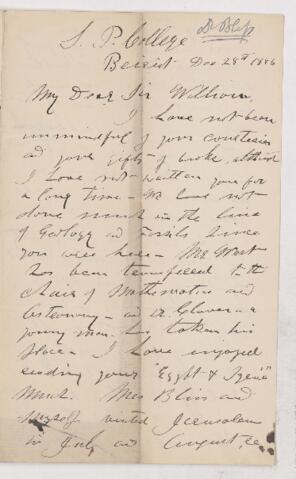 Dr Bliss
S. P. College
Beirut Dec 28th 1886
My Dear Sir William,
I have not been
unmindful of your courtesies
and your gifts of books, although
I have not written you for
a long time - We have not
done much in the line
of Geology and Fossils since
you were here - Mr West
has been transferred to the
chair of Mathematics and
Astronomy - and Dr. Glover a
young man has taken his
place - I have enjoyed
reading your "Egypt & Syria"
Much. Mrs Bliss and
myself visited Jerusalem
in July and August,